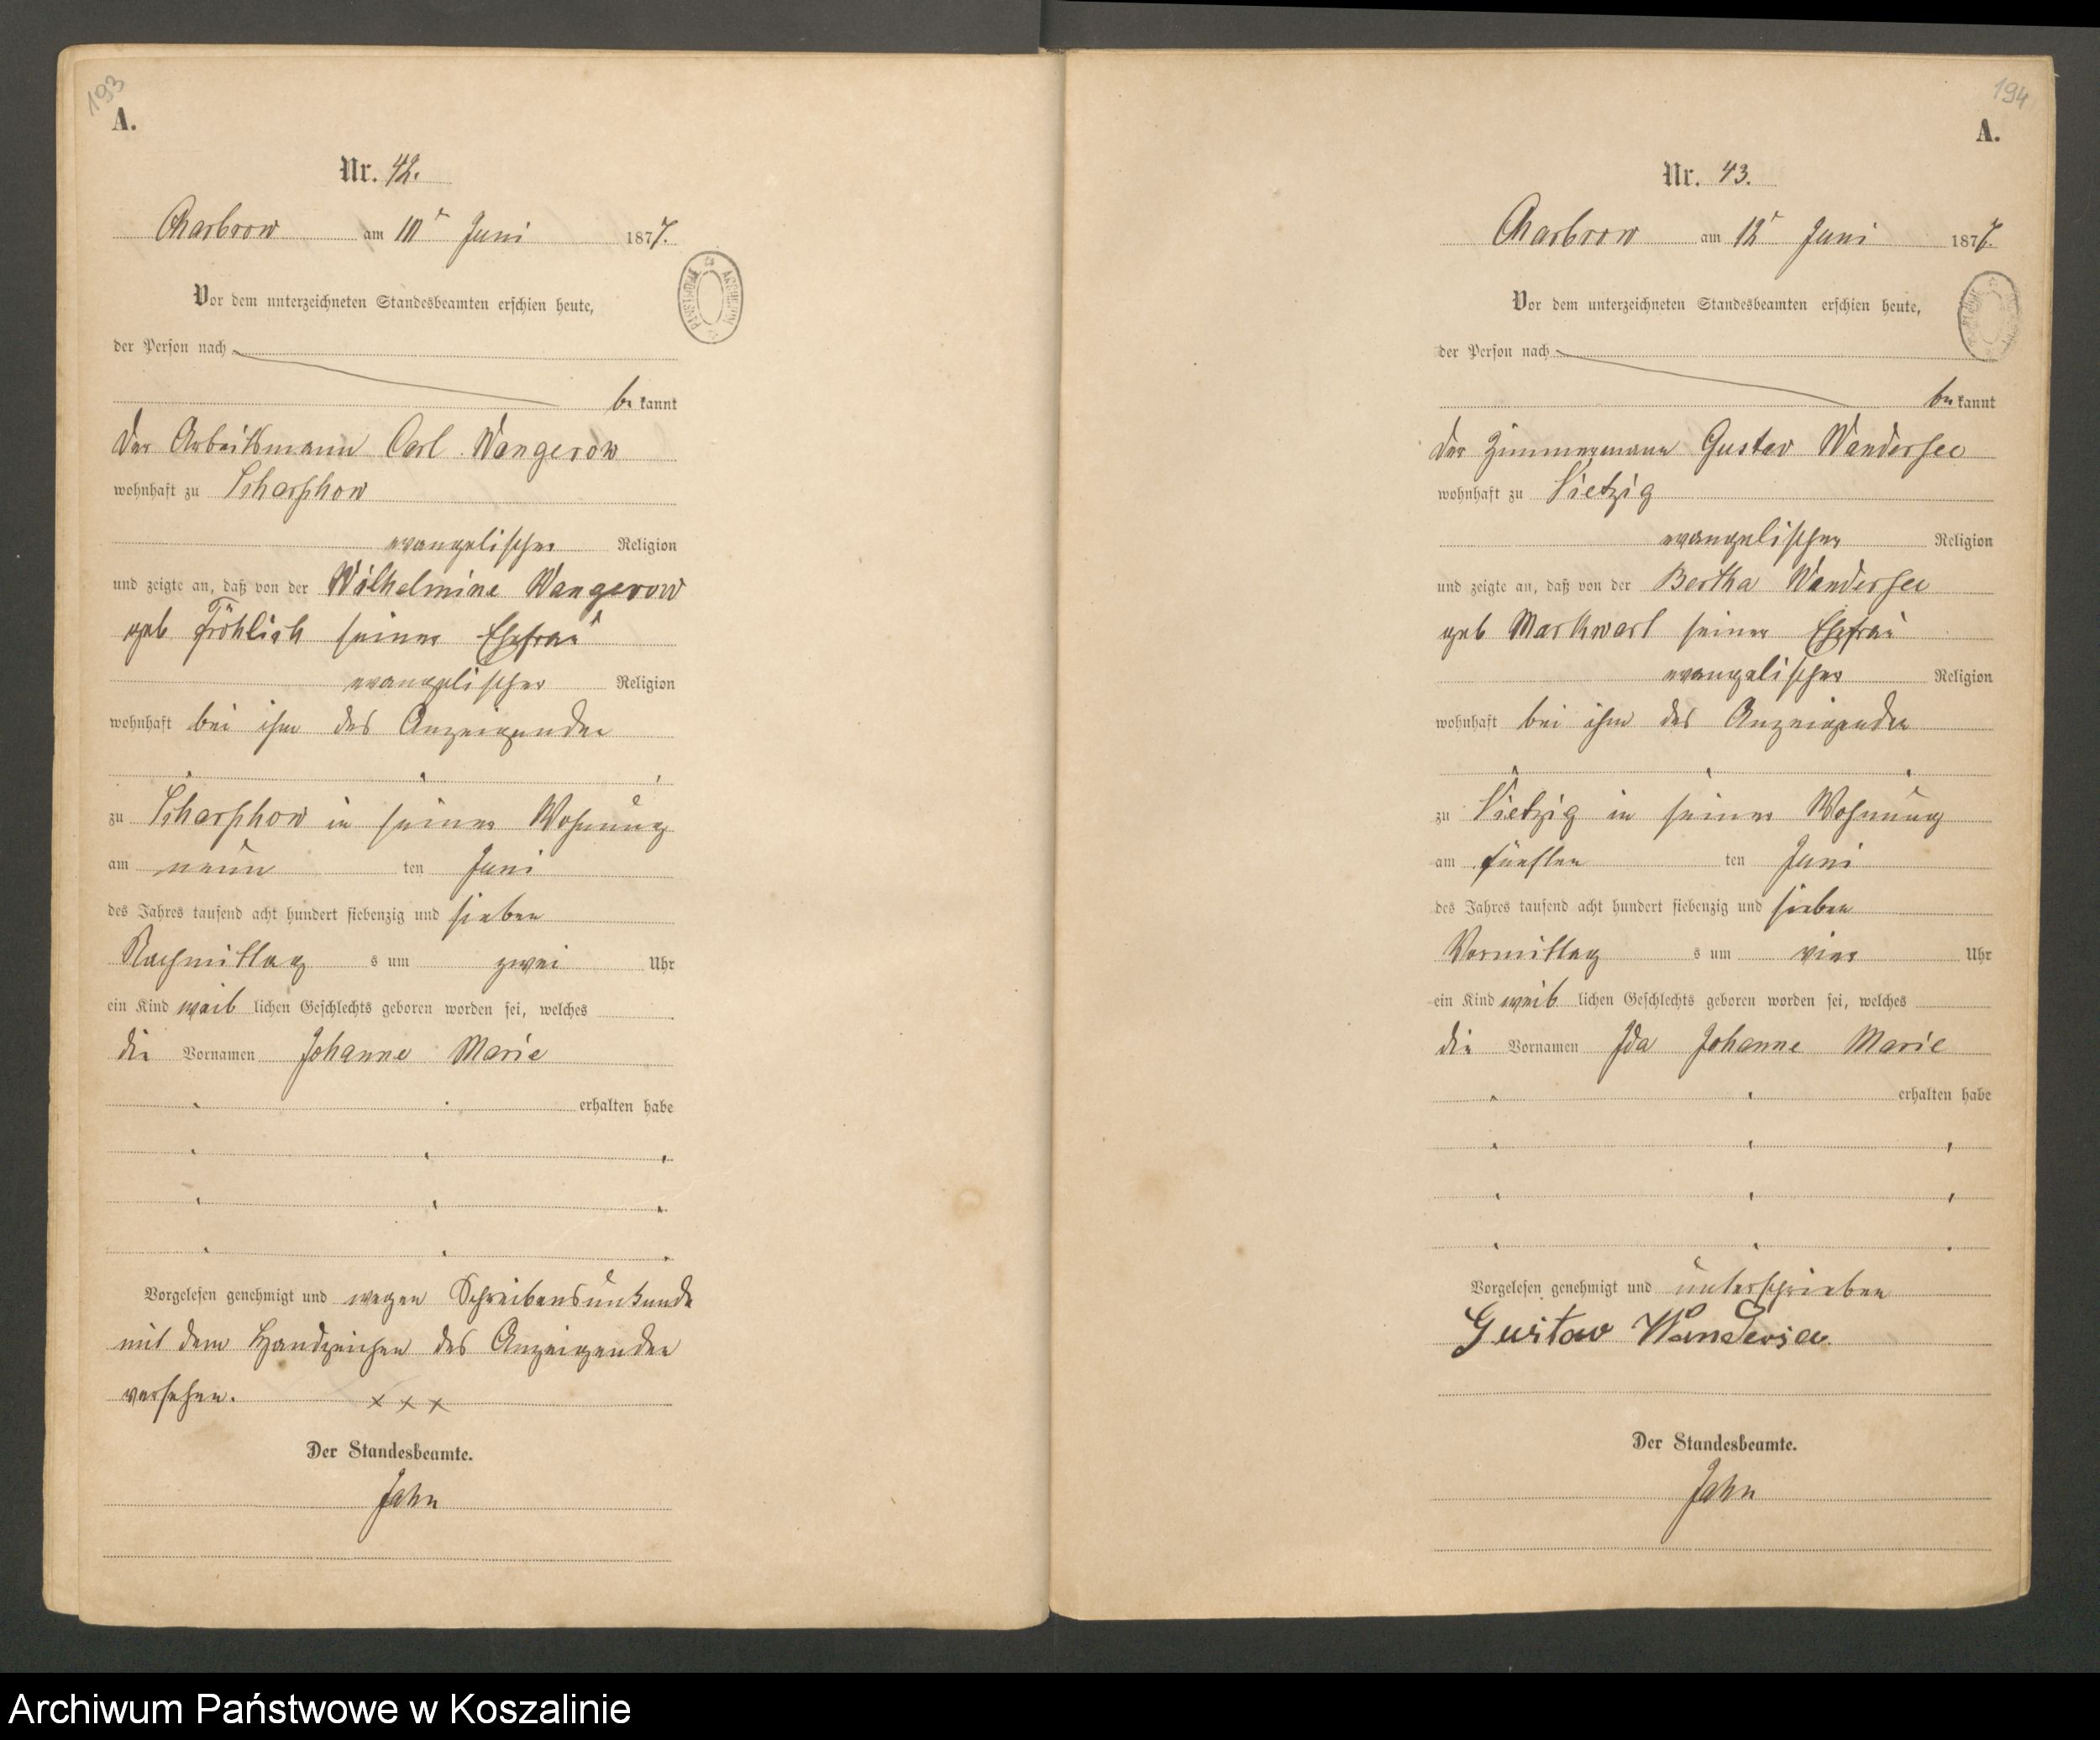 193
A.
Nr. 42.
Charbrow am 10t Juni 1877.
Vor dem unterzeichneten Standesbeamten erschien heute,
der Person nach
be kannt
der Arbeitsmann Carl Wangerow
wohnhaft zu Scharschow
evangelischer Religion
und zeigte an, daß von der Wilhelmine Wangerow
geb Fröhlich seiner Ehefrau
evangelischer Religion
wohnhaft bei ihm des Anzeigenden
zu Scharschow in seiner Wohnung
am neun ten Juni
des Jahres tausend acht hundert siebenzig und sieben
Nachmittag s um zwei Uhr
ein Kind weib lichen Geschlechts geboren worden sei, welches
die Vornamen Johanne Marie
erhalten habe
Vorgelesen genehmigt und wegen Schreibensunkunde
mit dem Handzeichen des Anzeigenden
versehen. x x x
Der Standesbeamte.
Jahn
194
A.
Nr. 43.
Charbrow am 12t Juni 1877.
Vor dem unterzeichneten Standesbeamten erschien heute,
der Person nach
be kannt
der Zimmermann Gustav Wandersee
wohnhaft zu Vietzig
evangelischer Religion
und zeigte an, daß von der Bertha Wandersee
geb Markwart seiner Ehefrau
evangelischer Religion
wohnhaft bei ihm des Anzeigenden
zu Vietzig in seiner Wohnung
am fünften ten Juni
des Jahres tausend acht hundert siebenzig und sieben
Vormittag s um vier Uhr
ein Kind weib lichen Geschlechts geboren worden sei, welches
die Vornamen Ida Johanne Marie
erhalten habe
Vorgelesen genehmigt und unterschrieben
Gustav
Der Standesbeamte.
Jahn
Archiwum Państwowe w Koszalinie